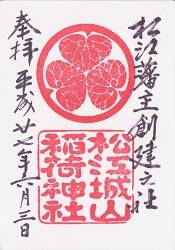 松江藩主創建之社
松江城山
稲荷神社
奉拝
平成廿七年六月三日